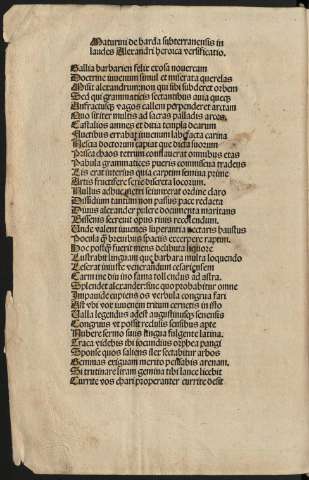 Maturini de barda subterranensis in
laudes Alexandri heroica versificatio.
Gallia barbariem felix exosa novercam
Doctrine iuvenum simul et miserata querelas
Misit alexandrum: non qui sibi subderet orbem
Sed qui grammaticis sectantibus avia queq̃
Anfractusq̃ vagos callem perpenderet arctam
Quo sititer multis ad sacras palladis arces
Castalios amnes et ditia templa dearum
Auctibus errabat iuvenum labefacta carina
Nescia doctorum capiat que dicta suorum
Prisca chaos rerum conflaverat omnibus etas
Pabula grammatices pueris commissura tradens
Lis erat intersitis quia carptim semina prime
Artis fructifere serie discreta locorum.
Nullus adhuc metri servaverat ordine claro
Dissidium tantum non passus pace redacta
Divus alexander pulcre documenta maritans
Bissenis secrevit opus rivis recolendum.
Unde valent iuvenes superantia nectaris haustus
Pocula q̃ brevibus spaciis excerpere raptim.
Hoc postq̃ fuerit mens delibuta liquore
Lustrabit linguam que barbara multa loquendo
Leserat iniuste venerandum cesariensem
Carmine diu ino fama toll endus ad astra.
Splendet alexander: sine quo probabitur omne
Impavide cupiens os verbula congrua fari
Ast ubi vox iuvenem tritum cernetis in isto
Valla legendus adest augustinusq̃ senensis
Congruus vt possit redulis sensibus apte
Nubere sermo suis lingua fulgente latina.
Traca videbis ibi iocundius orphea pangi
Sponse quos saliens iter sectabitur arbos
Gemmas exiguam merito pensabis arenam.
Si trutinare liram gemina tibi lance licebit
Currite vos chari properanter currite desit